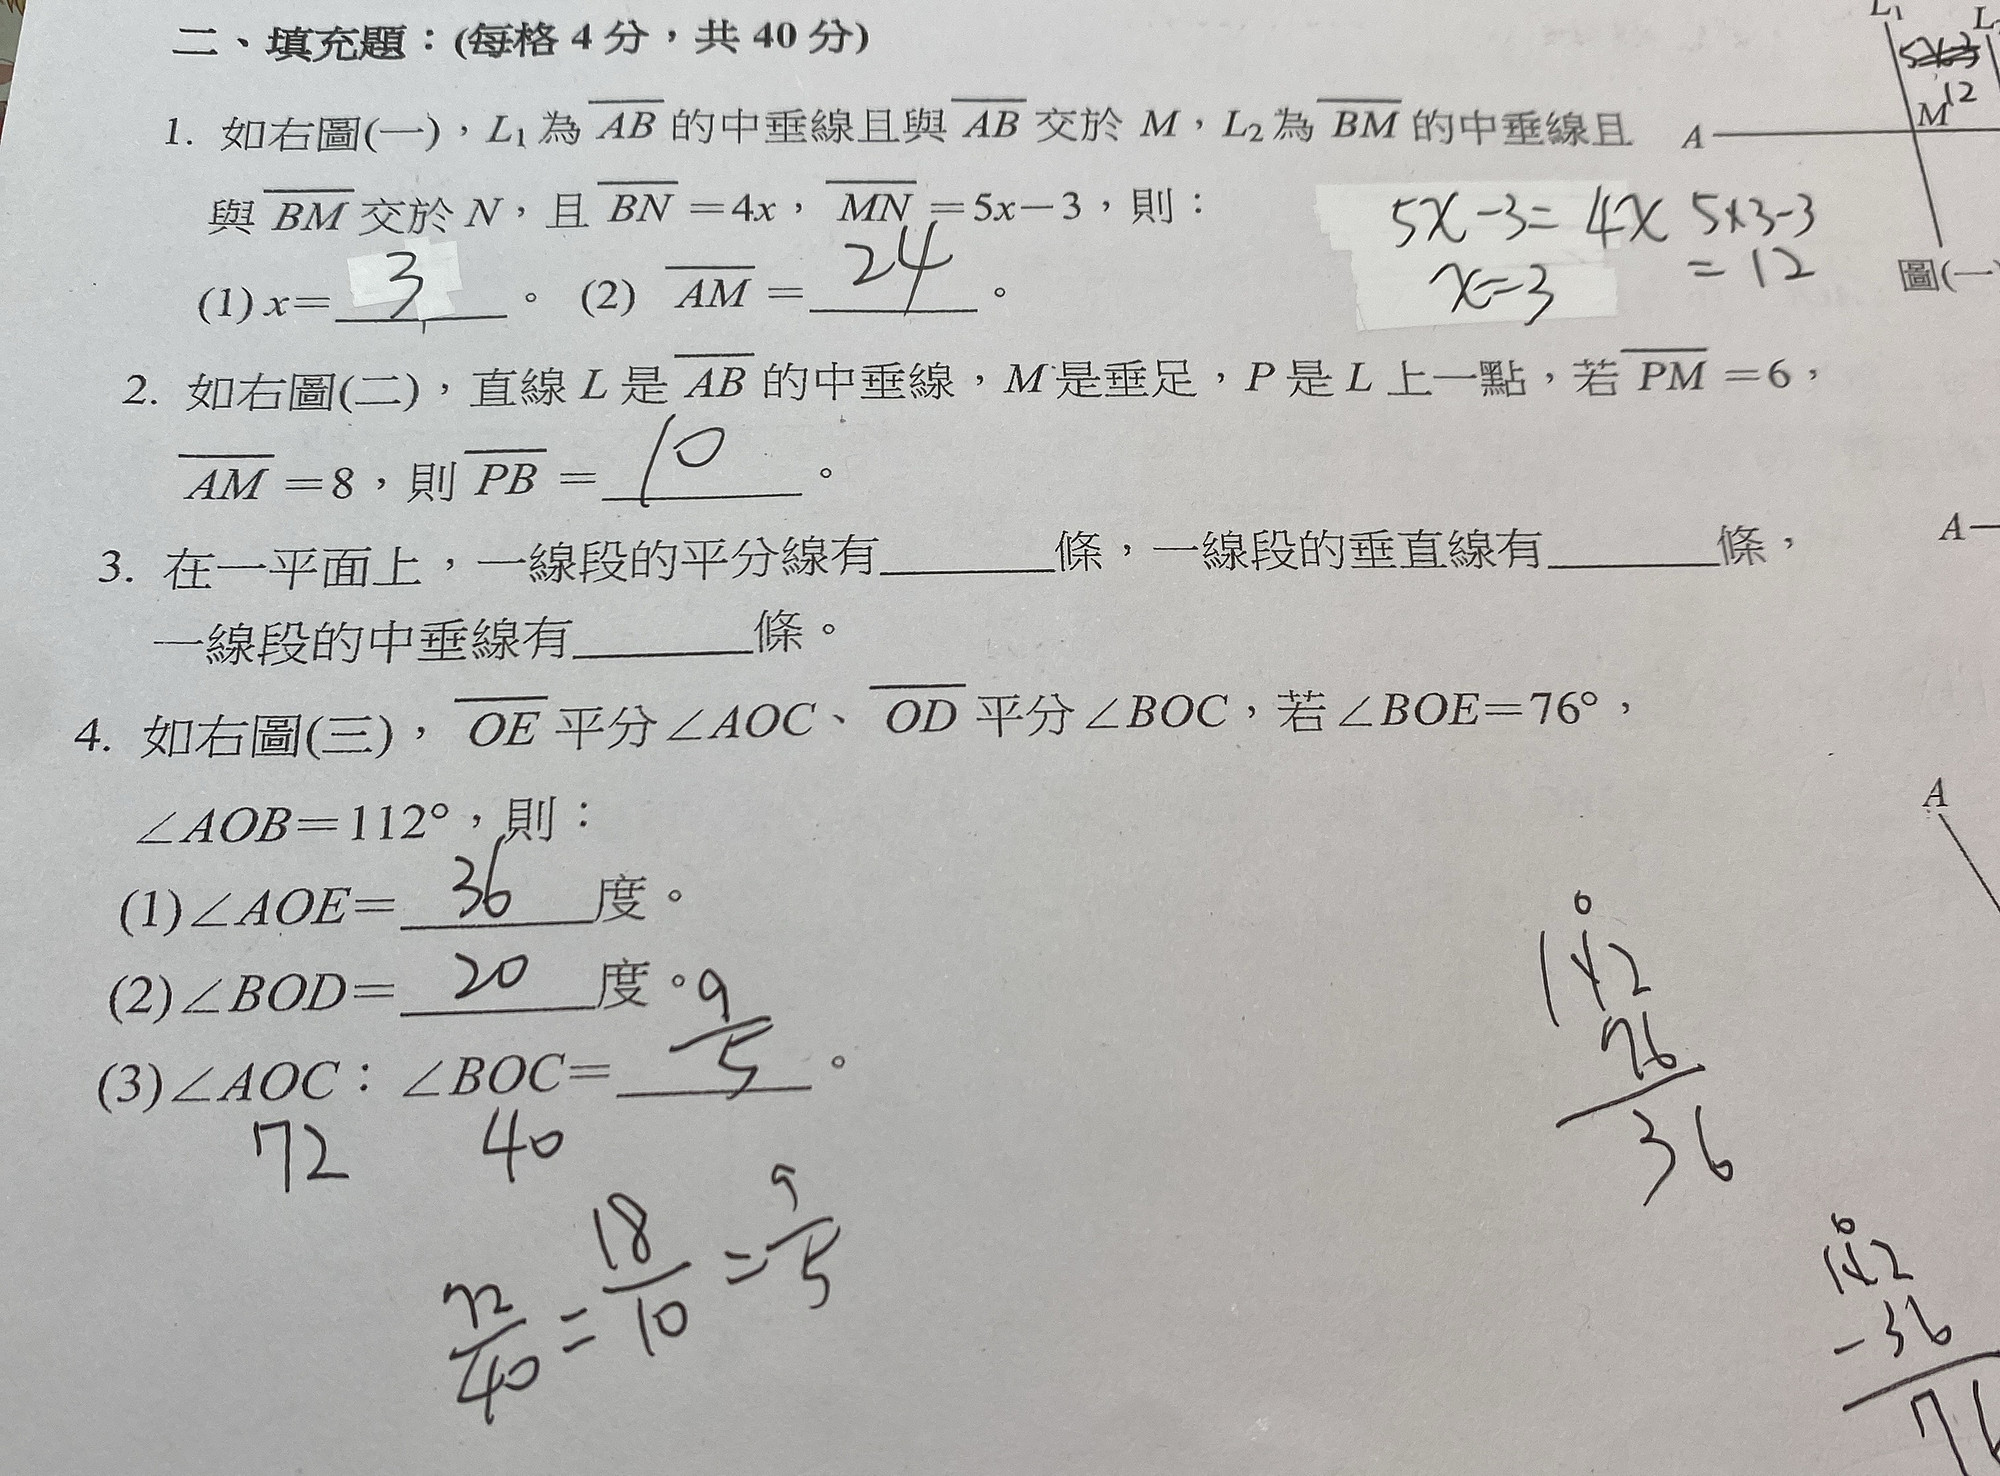 二、填充題：(每格 4 分，共 40 分)
1. 如右圖(一)，L1 為 AB 的中垂線且與 AB 交於 M，L2 為 BM 的中垂線且
與 BM 交於 N，且 BN =4x，MN =5x－3，則：
(1) x= 3 。 (2) AM = 24 。
5x-3=4x
x=3
5×3-3
=12
L1
M
12
A
圖(一)
2. 如右圖(二)，直線 L 是 AB 的中垂線，M 是垂足，P 是 L 上一點，若 PM =6，
AM =8，則 PB = 10 。
A
3. 在一平面上，一線段的平分線有______條，一線段的垂直線有______條，
一線段的中垂線有______條。
4. 如右圖(三)， OE 平分∠AOC、 OD 平分∠BOC，若∠BOE=76°，
∠AOB=112°，則：
A
(1)∠AOE= 36 度。
(2)∠BOD= 20 度。
(3)∠AOC：∠BOC= 9/5 。
72 40
72/40 = 18/10 = 9/5
0
112
76
36
0
112
-36